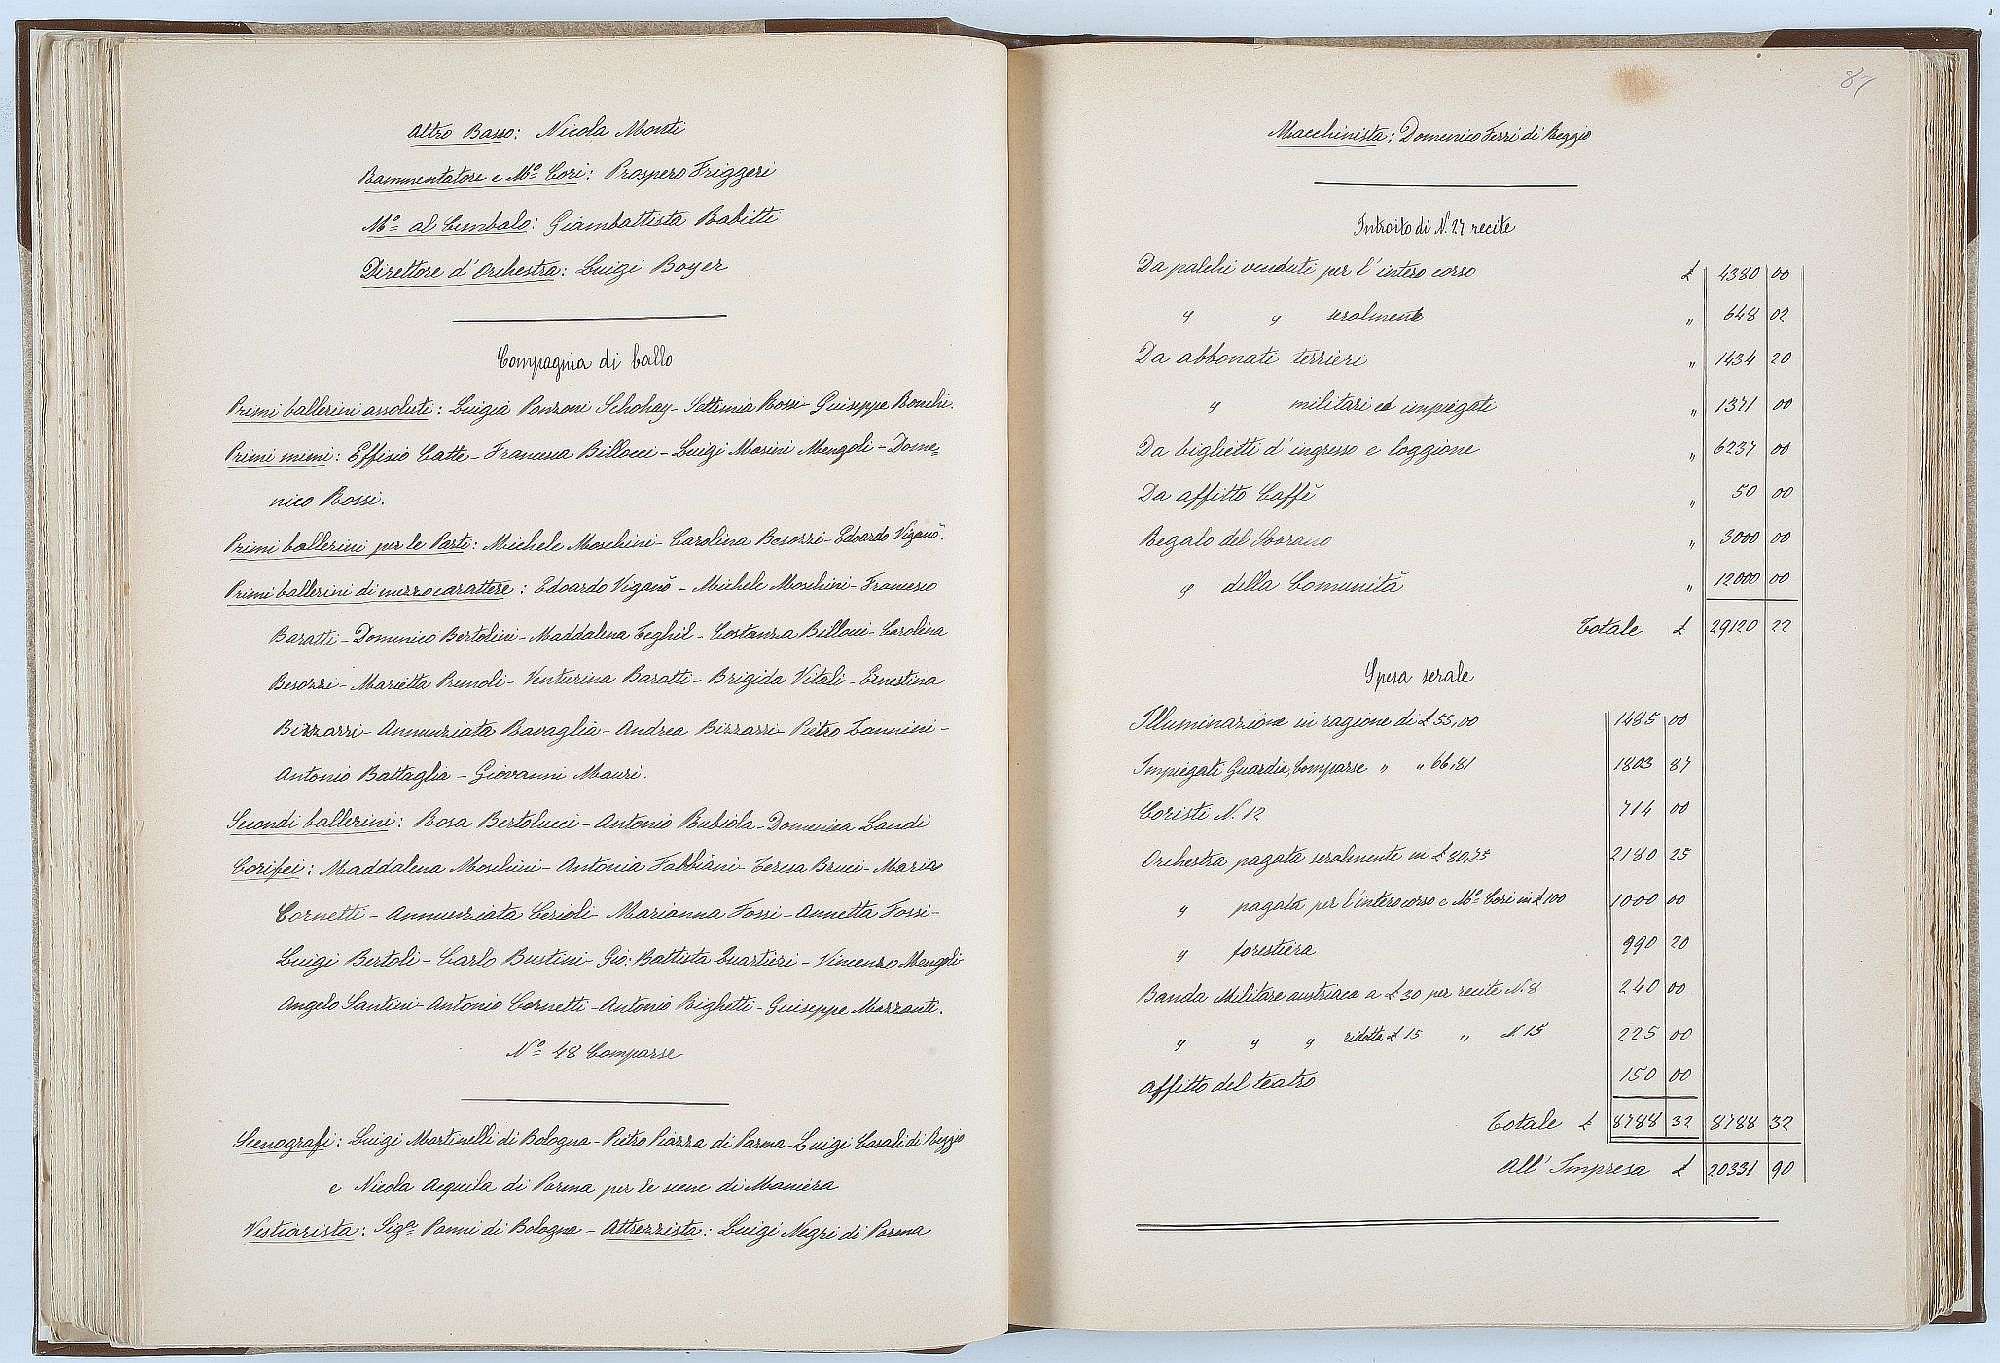 Altro Basso: Nicola Monti
Rammentatore e Mo. Cori: Prospero Friggeri
Mo. al Cembalo: Giambattista Rabitti
Direttore d'Orchestra: Luigi Boyer
Compagnia di ballo
Primi ballerini assoluti: Luigia Ponzoni Schohay - Settimia Rossi - Guiseppe Bonchi.
Primi mimi: Effisio Catte - Francesca Billocci - Luigi Masini Mengoli - Dome=
nico Rossi.
Primi ballerini per le Parti: Michele Moschini - Carolina Besozzi - Edoardo Viganò.
Primi ballerini di mezzo carattere: Edoardo Viganò - Michele Moschini - Francesco
Baratti - Domenico Bertolini - Maddalena Teghil - Costanza Billoni - Carolina
Besozzi - Marietta Runoli - Venturina Baratti - Brigida Vitali - Ernestina
Bizzarri - Annunziata Ravaglia - Andrea Bizzarri - Pietro Zannini -
Antonio Battaglia - Giovanni Mauri.
Secondi ballerini: Rosa Bertolucci - Antonio Rubiola - Domenica Landi
Corifei: Maddalena Moschini - Antonia Fabbiani - Teresa Bruci - Maria
Cornetti - Annunziata Cerioli - Marianna Fossi - Annetta Fossi -
Luigi Bertoli - Carlo Bustini - Gio: Battista Quartieri - Vincenzo Mengoli
Angelo Santini - Antonio Cornetti - Antonio Righetti - Guiseppe Mazzanti.
No. 48 Comparse
Scenografi: Luigi Martinelli di Bologna - Pietro Piazza di Parma - Luigi Casali di Reggio
e Nicola Acquila di Parma per le scene di Maniera
Vestiarista: Siga. Panni di Bologna - Attrezzista: Luigi Negri di Parma
87
Macchinista: Domenico Ferri di Reggio
Introito di N. 27 recite
Da palchi venduti per l'intero corso £ 4380 00
" " seralmente " 648 02
Da abbonati terrieri " 1434 20
" militari ed impiegati " 1371 00
Da biglietti d'ingresso e loggione " 6237 00
Da affitto Caffè " 50 00
Regalo del Sovrano " 3000 00
" della Comunità " 12000 00
Totale £ 29120 22
Spesa serale
Illuminazione in ragione di £ 55,00 1485 00
Impiegati Guardia, Comparse " " 66,81 1803 87
Coristi N. 12 714 00
Orchestra pagata seralmente in £ 80,75 2180 25
" pagata per l'intero corso e Mo. Cori in £ 100 1000 00
" forestiera 990 20
Banda Militare austriaca a £ 30 per recite N. 8 240 00
" " " ridotta £ 15 " N. 15 225 00
Affitto del teatro 150 00
Totale £ 8788 32 8788 32
All' Impresa £ 20331 90